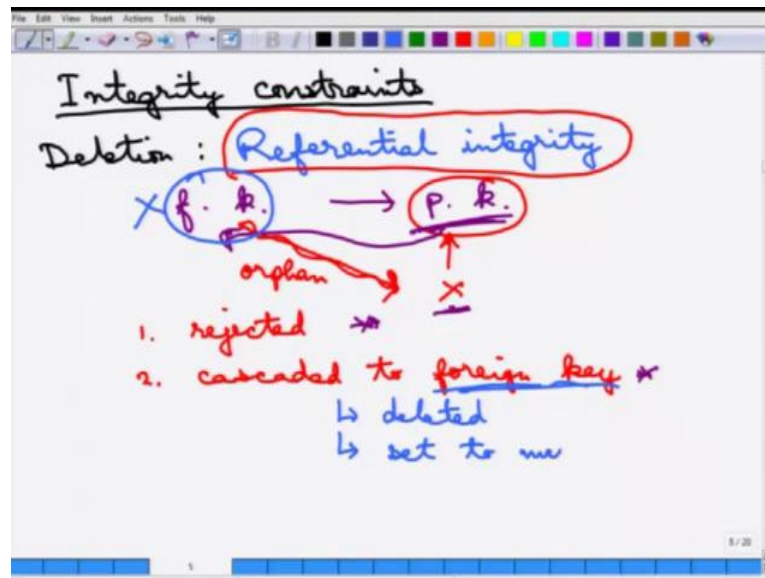 File Edit View Insert Actions Tools Help
Integrity constraints
Deletion : Referential integrity
f. k. → p. k.
orphan
1. rejected
2. cascaded to foreign key
↳ deleted
↳ set to
5 / 20
5